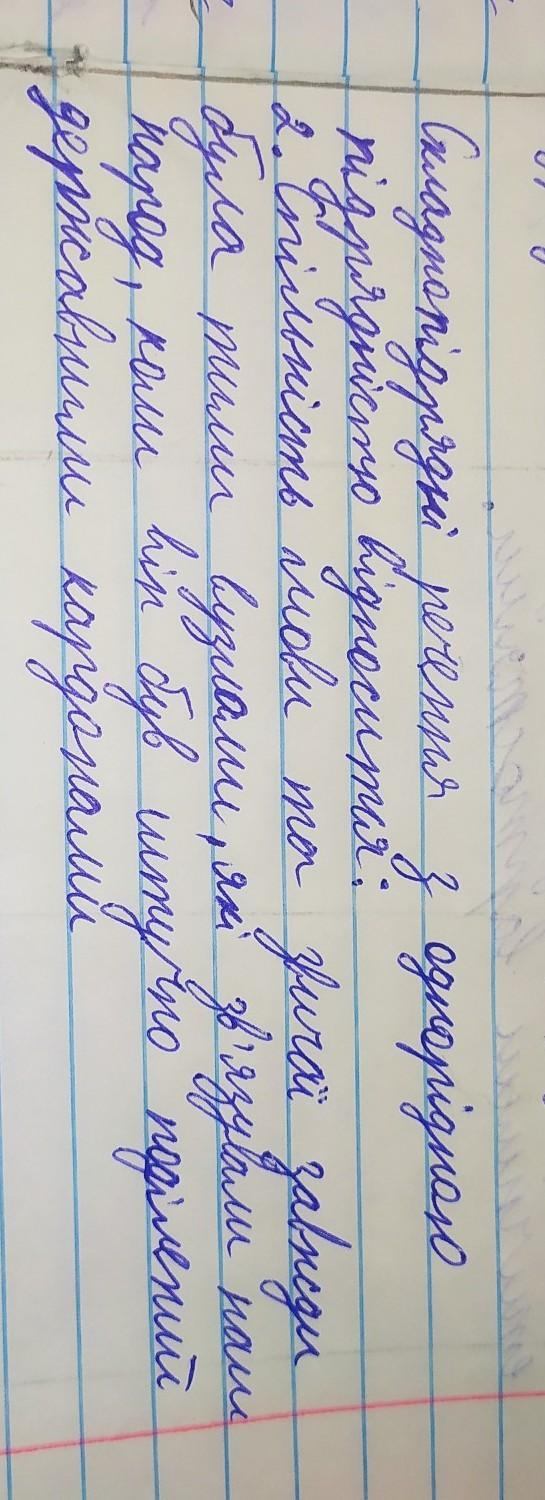 Складнопідрядні речення з однорідною
підрядністю відноситься:
2. Спільність мови та звичаї завжди
була тими вузлами, які зв'язували наш
народ, коли він був штучно поділений
державними кардонами